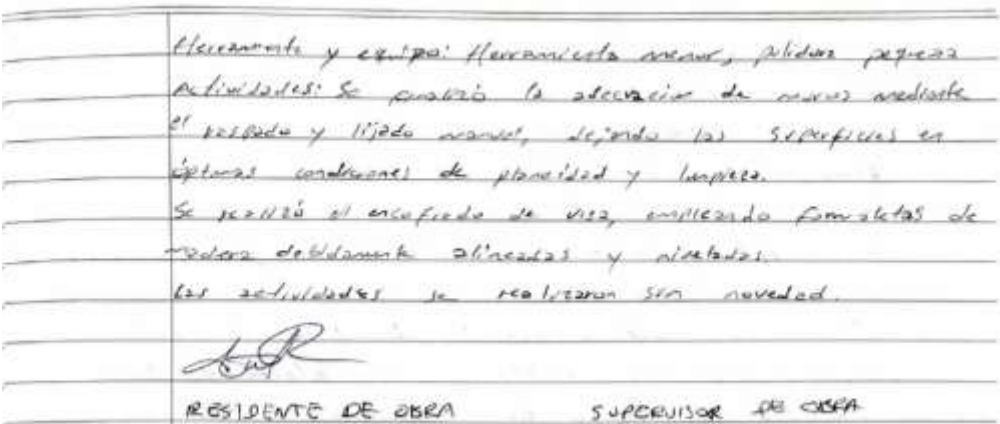 Herramienta y equipo: Herramienta menor, pulidora pequeña
Actividades: Se finalizó la adecuación de muros mediante
el raspado y lijado manual, dejando las superficies en
óptimas condiciones de planeidad y limpieza.
Se realizó el encofrado de viga, empleando formaletas de
madera debidamente alineadas y niveladas.
Las actividades se realizaron sin novedad.
RESIDENTE DE OBRA SUPERVISOR DE OBRA